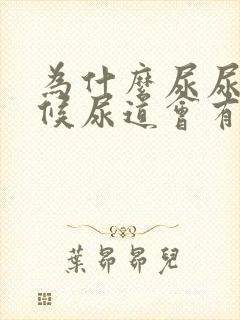 為什麼尿尿
候尿道會有
葉昂昂兒